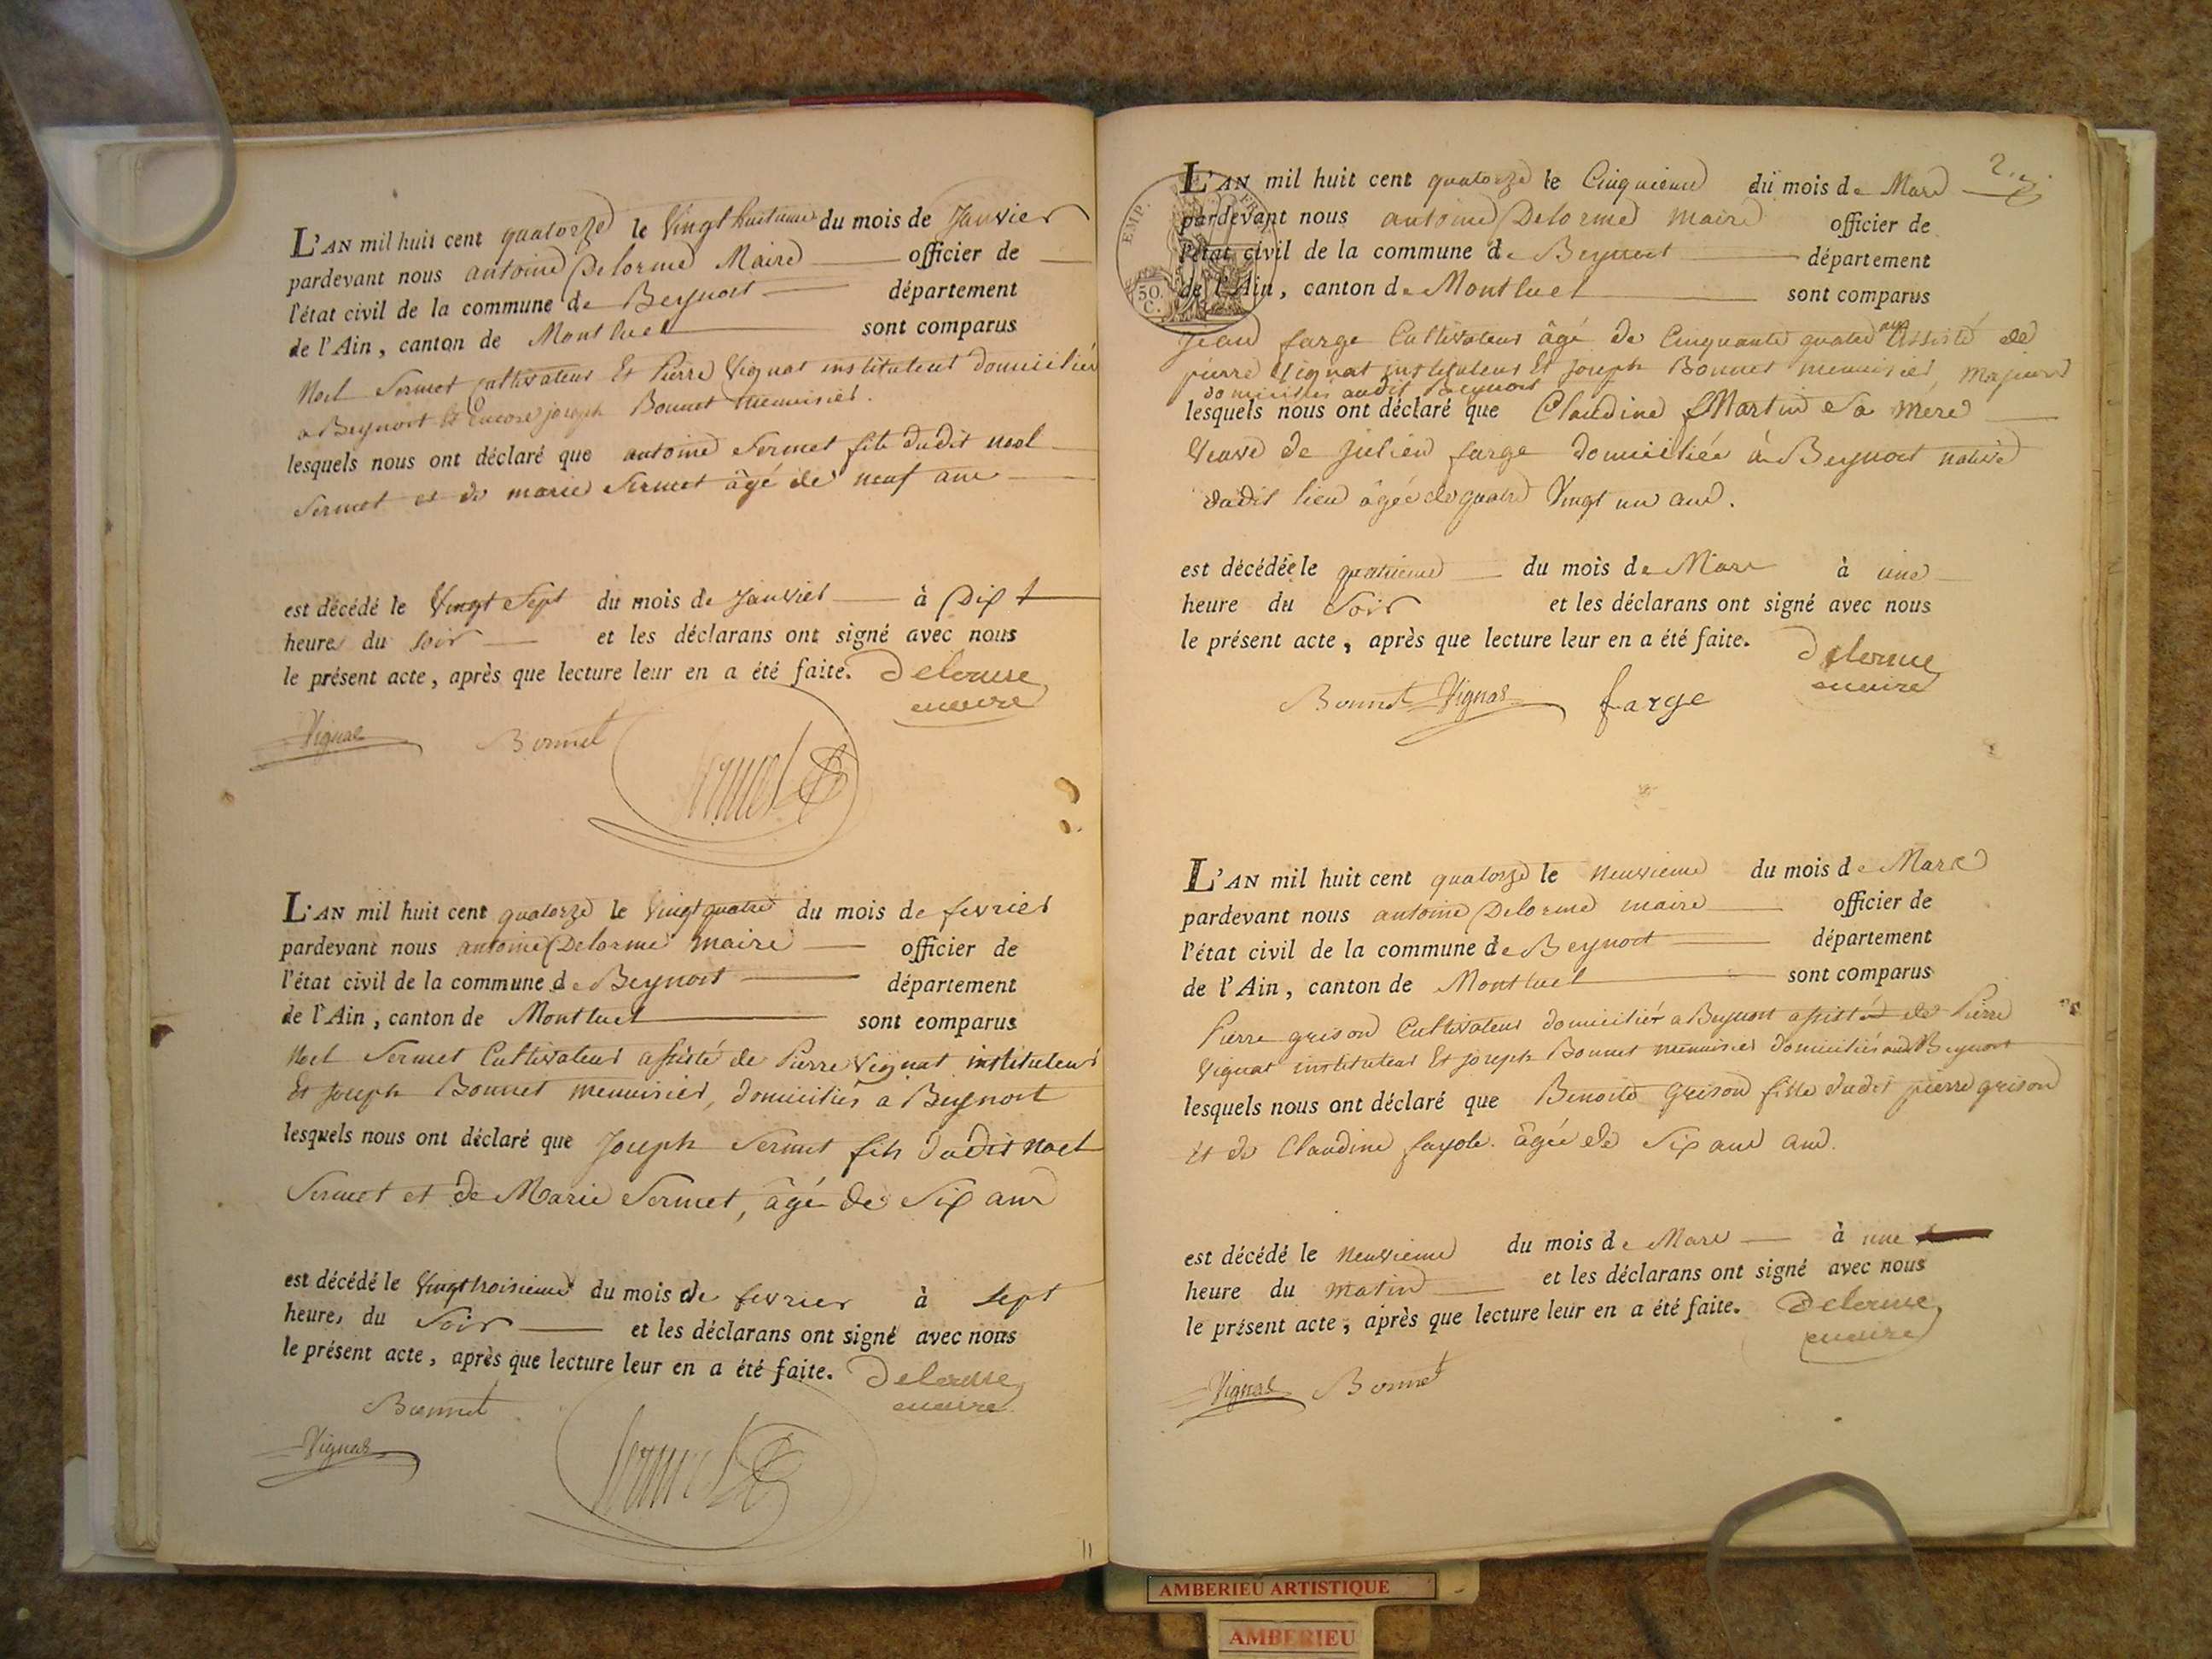 L'AN mil huit cent quatorze le Vingt huitieme du mois de Janvier
pardevant nous antoine Delorme Maire officier de
l'état civil de la commune de Beynost département
de l'Ain, canton de Montluel sont comparus
Noel Sermet Cultivateur Et Pierre Vignat instituteur domiciliés
a Beynost Et Encore joseph Bonnet menuisier.
lesquels nous ont déclaré que antoine Sermet fils dudit noel
Sermet et de marie Sermet âgé de neuf ans
est décédé le Vingt Sept du mois de Janvier à Dix
heures du soir et les déclarans ont signé avec nous
le présent acte, après que lecture leur en a été faite. Delorme
maire
Vignat Bonnet Sermet
L'AN mil huit cent quatorze le Vingt quatre du mois de fevrier
pardevant nous antoine Delorme maire officier de
l'état civil de la commune de Beynost département
de l'Ain, canton de Montluel sont comparus
Noel Sermet Cultivateur assisté de Pierre Vignat instituteur
Et joseph Bonnet menuisier, domiciliés a Beynost
lesquels nous ont déclaré que Joseph Sermet fils dudit Noel
Sermet et de Marie Sermet, âgé de Six ans
est décédé le Vingt troisieme du mois de fevrier à sept
heures du Soir et les déclarans ont signé avec nous
le présent acte, après que lecture leur en a été faite. Delorme
maire
Bonnet
Vignat Sermet
11
2.
L'AN mil huit cent quatorze le Cinquieme du mois de Mars
pardevant nous antoine Delorme maire officier de
l'état civil de la commune de Beynost département
de l'Ain, canton de Montluel sont comparus
EMP. FR.
50.
C.
Jean farge Cultivateur âgé de Cinquante quatre ans assisté de
pierre Vignat instituteur Et joseph Bonnet menuisier, majeurs
domiciliés audit Beynost
lesquels nous ont déclaré que Claudine Martin Sa mere
Veuve de julien farge domiciliée à Beynost native
dudit lieu âgée de quatre Vingt un ans.
est décédée le quatrieme du mois de Mars à une
heure du Soir et les déclarans ont signé avec nous
le présent acte, après que lecture leur en a été faite. Delorme
maire
Bonnet Vignat farge
L'AN mil huit cent quatorze le neuvieme du mois de Mars
pardevant nous antoine Delorme maire officier de
l'état civil de la commune de Beynost département
de l'Ain, canton de Montluel sont comparus
Pierre grison Cultivateur domicilié a Beynost assisté de Pierre
Vignat instituteur Et joseph Bonnet menuisier domiciliés audit Beynost
lesquels nous ont déclaré que Benoite Grison fille dudit pierre grison
Et de Claudine fayole. âgée de Six ans ans.
est décédé le neuvieme du mois de Mars à une
heure du matin et les déclarans ont signé avec nous
le présent acte, après que lecture leur en a été faite. Delorme
maire
Vignat Bonnet
AMBERIEU ARTISTIQUE
AMBERIEU